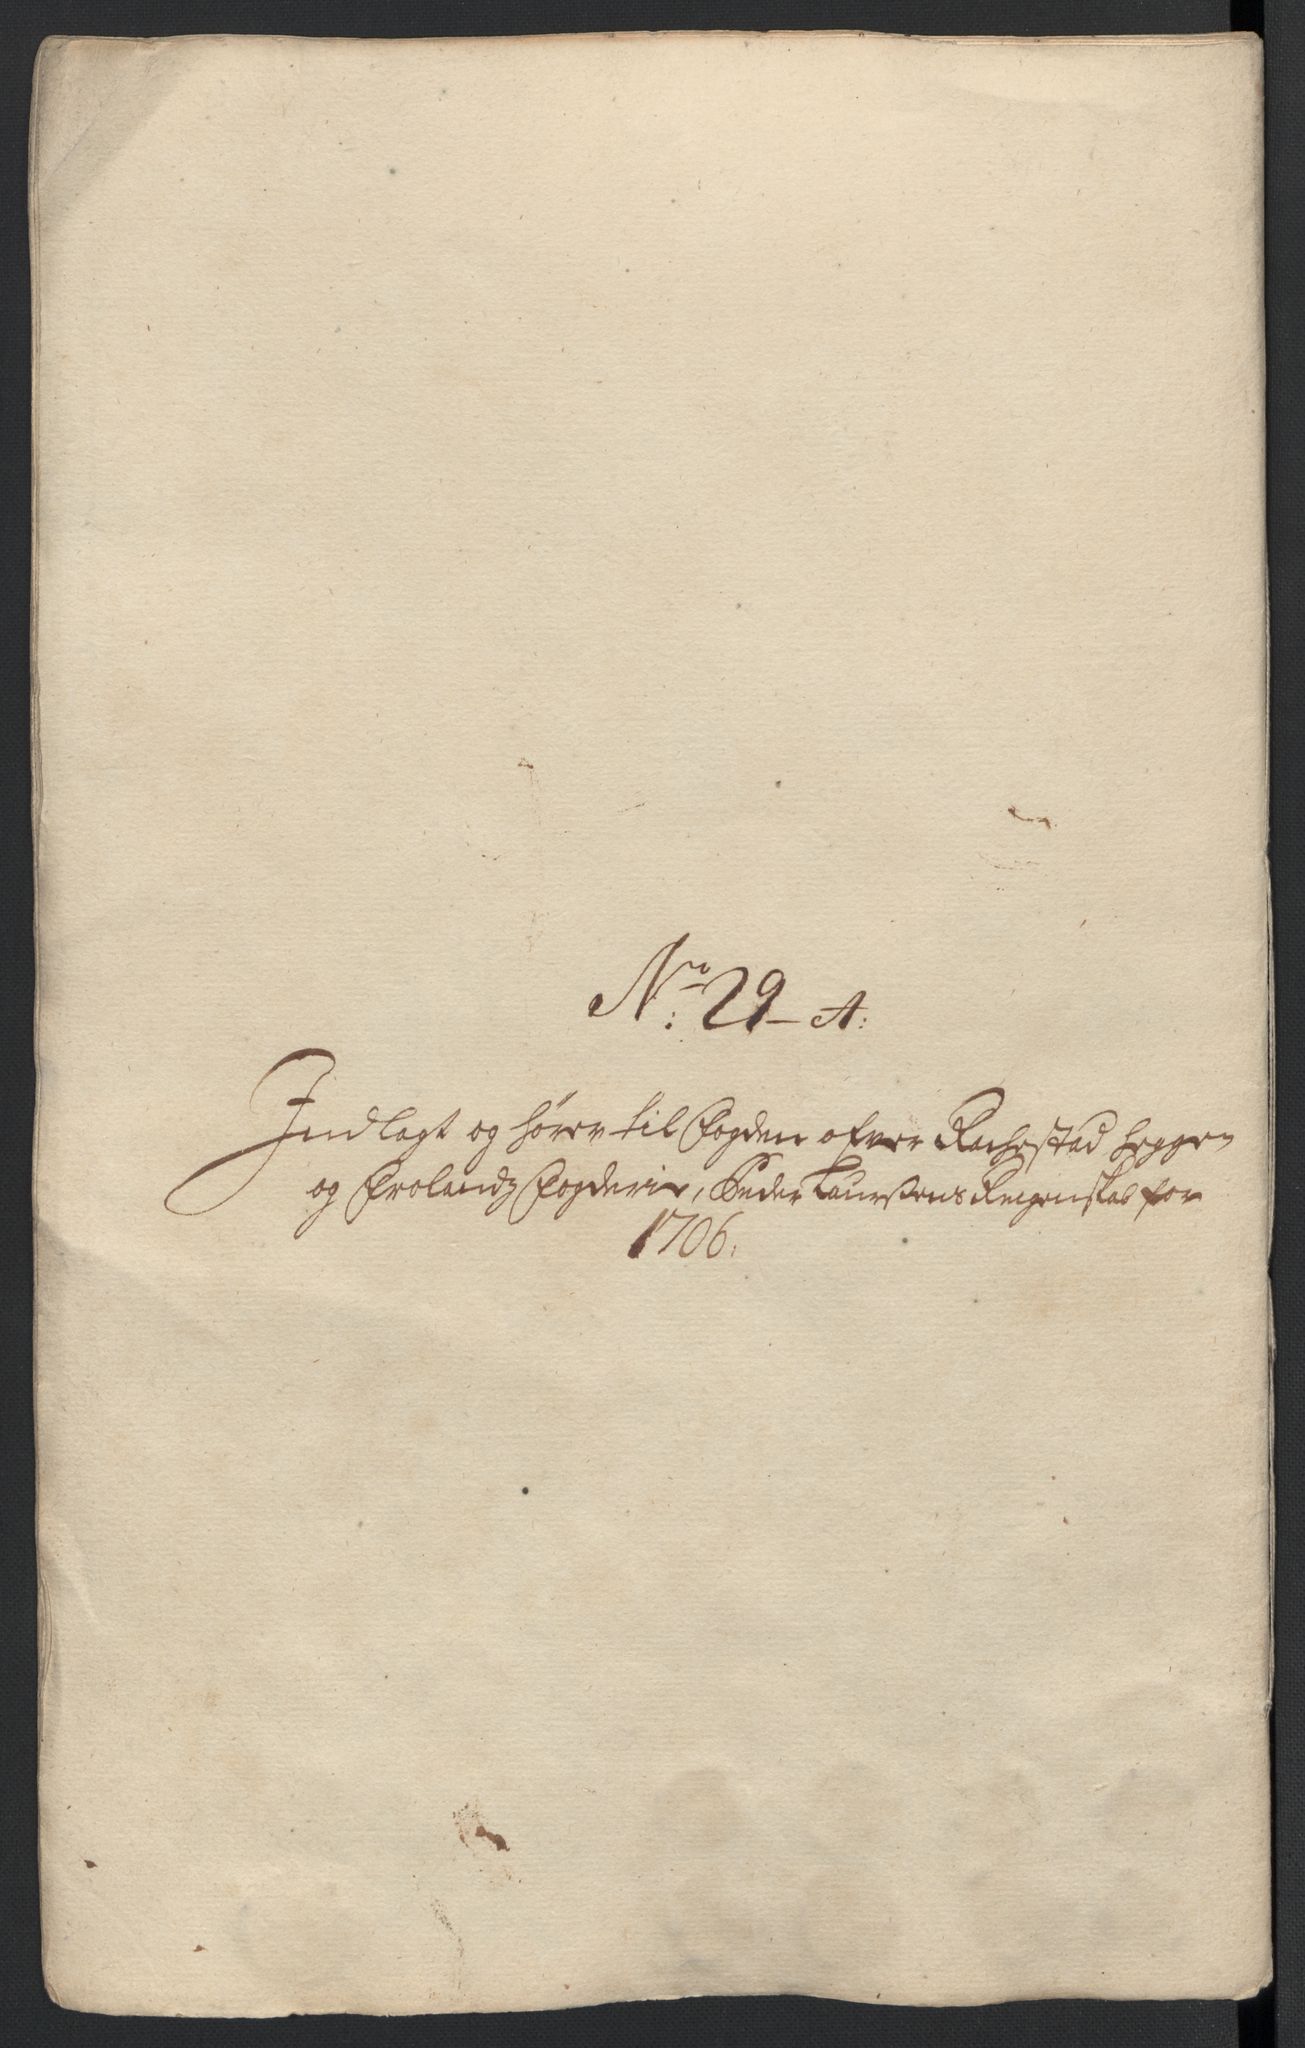 No: 29 – A:
Indlagt og hører til Fogden ofver Rachestad Heggen
og Frolands Fogderie, Peder Laurssens Regenskab for
1706.